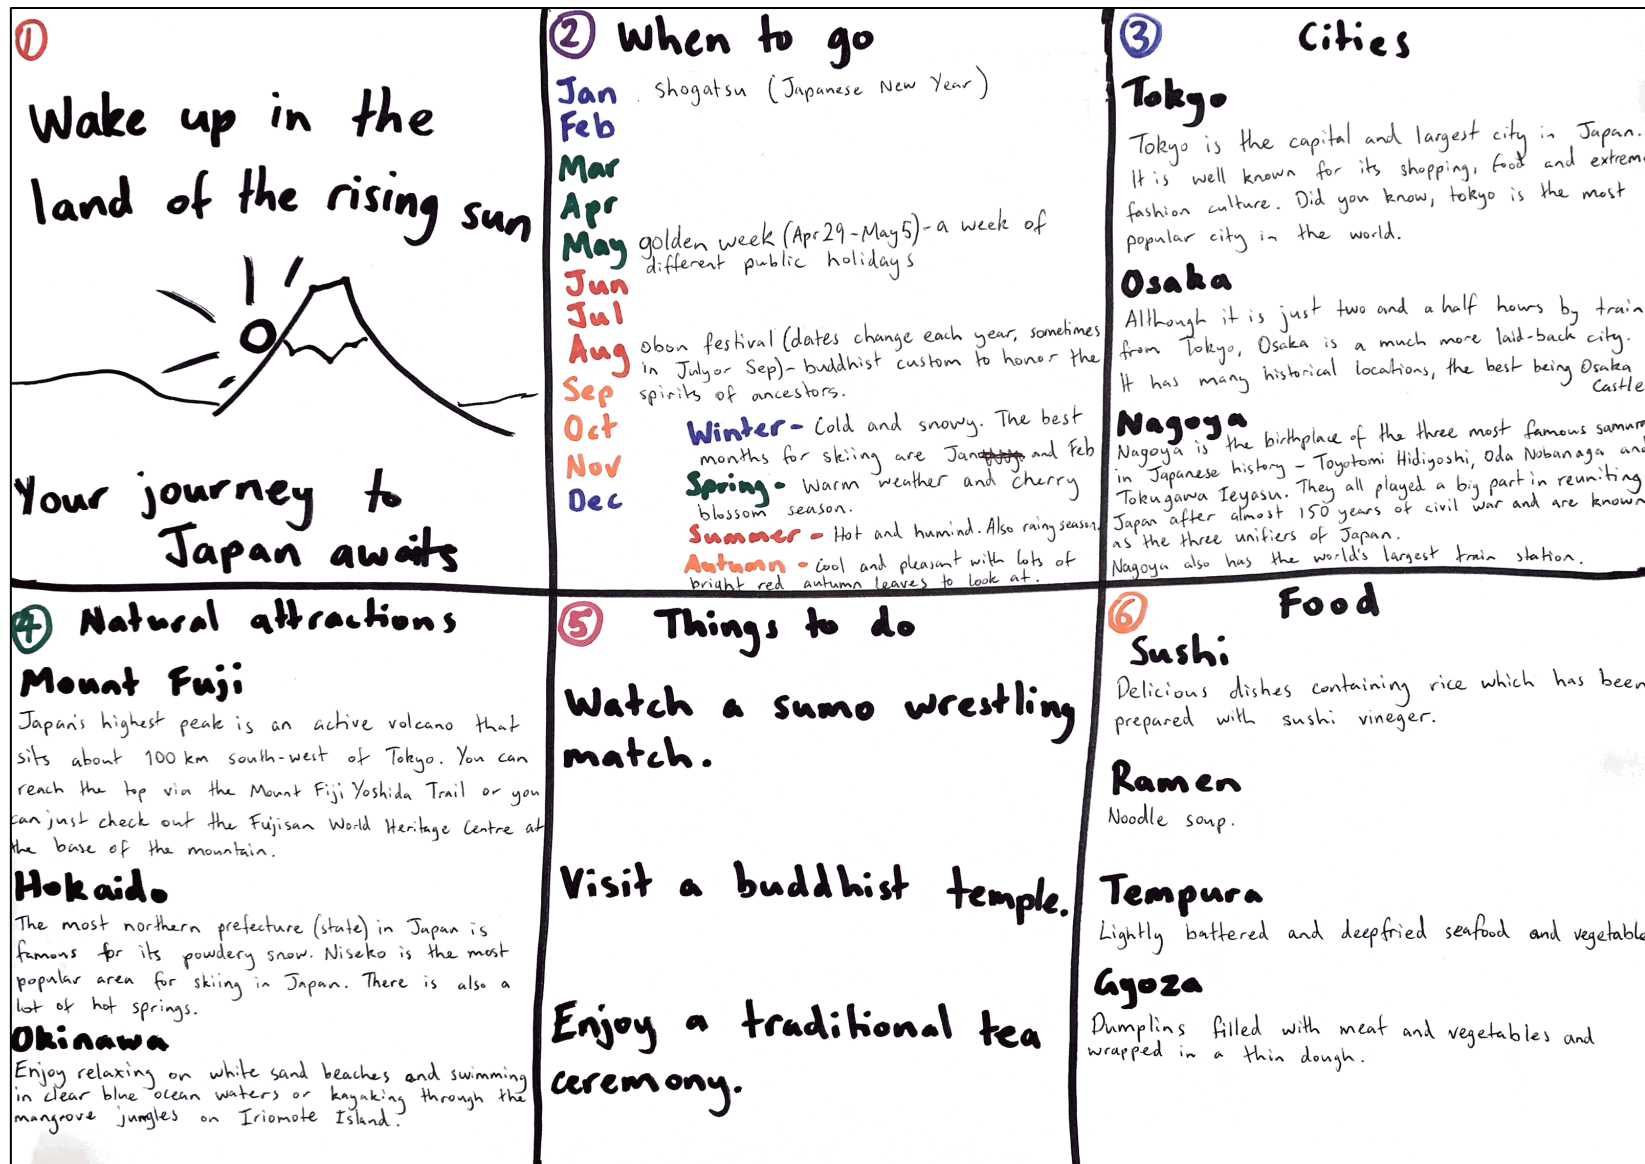 1
Wake up in the
land of the rising sun
Your journey to
Japan awaits
2 When to go
Jan . Shogatsu (Japanese New Year)
Feb
Mar
Apr
May golden week (Apr 29 - May 5) - a week of
different public holidays
Jun
Jul
Aug obon festival (dates change each year, sometimes
in July or Sep) - buddhist custom to honor the
Sep spirits of ancestors.
Oct
Nov
Dec
Winter - Cold and snowy. The best
months for skiing are Jan and Feb
Spring - Warm weather and cherry
blossom season.
Summer - Hot and humind. Also rainy season.
Autumn - Cool and pleasant with lots of
bright red autumn leaves to look at.
3 Cities
Tokyo
Tokyo is the capital and largest city in Japan.
It is well known for its shopping, food and extrem
fashion culture. Did you know, tokyo is the most
popular city in the world.
Osaka
Although it is just two and a half hours by train
from Tokyo, Osaka is a much more laid-back city.
It has many historical locations, the best being Osaka
Castle
Nagoya
Nagoya is the birthplace of the three most famous samura
in Japanese history - Toyotomi Hidiyoshi, Oda Nobanaga and
Tokugawa Ieyasu. They all played a big part in reuniting
Japan after almost 150 years of civil war and are known
as the three unifiers of Japan.
Nagoya also has the world's largest train station.
4 Natural attractions
Mount Fuji
Japan's highest peak is an active volcano that
sits about 100 km south-west of Tokyo. You can
reach the top via the Mount Fiji Yoshida Trail or you
can just check out the Fujisan World Heritage Centre at
the base of the mountain.
Hokaido
The most northern prefecture (state) in Japan is
famous for its powdery snow. Niseko is the most
popular area for skiing in Japan. There is also a
lot of hot springs.
Okinawa
Enjoy relaxing on white sand beaches and swimming
in clear blue ocean waters or kayaking through the
mangrove jungles on Iriomote Island.
5 Things to do
Watch a sumo wrestling
match.
Visit a buddhist temple.
Enjoy a traditional tea
ceremony.
6 Food
Sushi
Delicious dishes containing rice which has been
prepared with sushi vineger.
Ramen
Noodle soup.
Tempura
Lightly battered and deepfried seafood and vegetable
Gyoza
Dumplins filled with meat and vegetables and
wrapped in a thin dough.